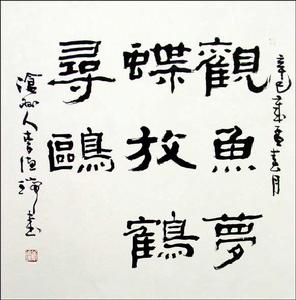 辛巳 春月
觀魚夢
蝶放鶴
尋鷗
滄州人李 書